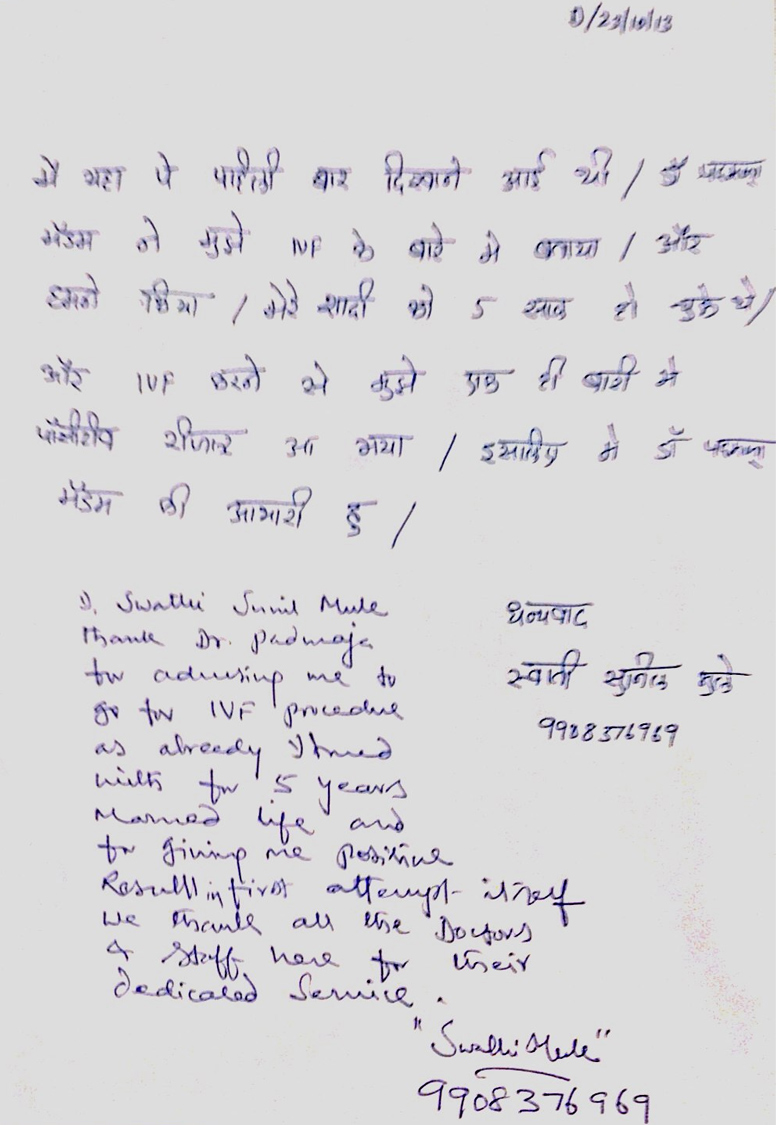 D/23/10/13
मैं यहा पे पाहिली बार दिखाने आई थी / डॉ पद्मजा
मॅडम ने मुझे IVF के बारे मे बताया / और
हमने किया / मेरे शादी को 5 साल हो चुके थे/
और IVF करने से मुझे एक ही बारी मे
पॉसीटीव रीजल्ट आ गया / इसलिए मे डॉ पद्मजा
मॅडम की आभारी हु /
धन्यवाद
स्वाती सुनिल मुले
9908376969
I, Swathi Sunil Mule
thank Dr. Padmaja
for advising me to
go for IVF procedure
as already I tried
with for 5 years
Married life and
for giving me positive
Result in first attempt itself
We thank all the Doctors
& Staff here for their
Dedicated Service.
"Swathi Mule"
9908376969